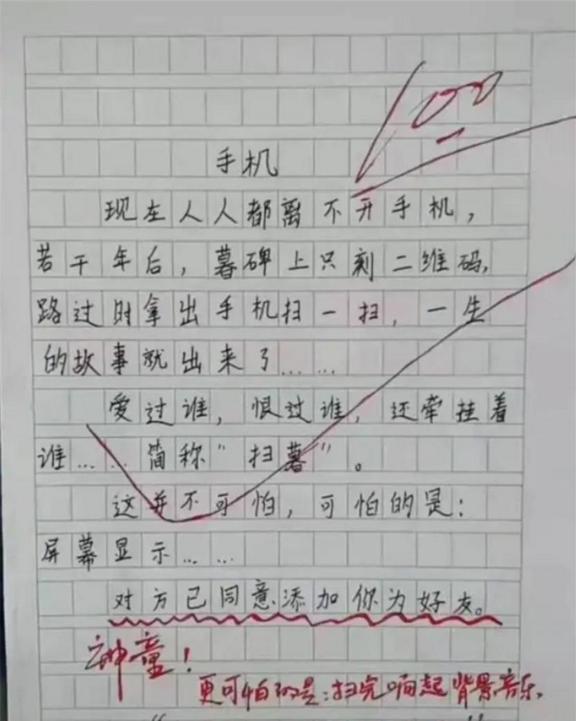 100
手机
现在人人都离不开手机，
若干年后，暮碑上只刻二维码，
路过时拿出手机扫一扫，一生
的故事就出来了……
爱过谁，恨过谁，还牵挂着
谁……简称“扫暮”。
这并不可怕，可怕的是：
屏幕显示……
对方已同意添加你为好友。
神童！
更可怕的是：扫完响起背景音乐.